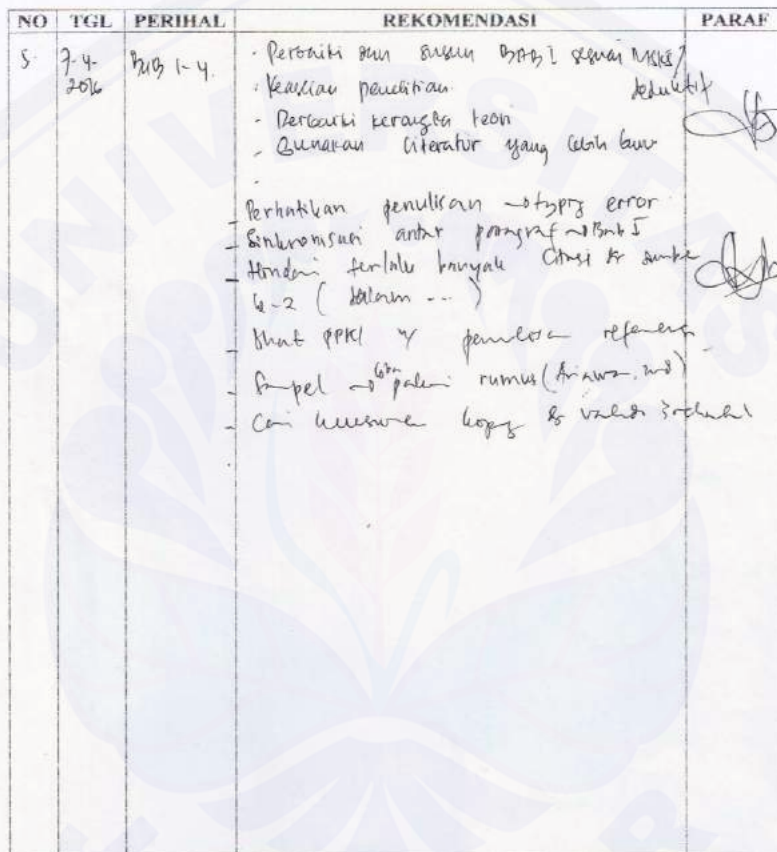 NO TGL PERIHAL REKOMENDASI PARAF
5. 7-4-2016 BAB 1-4.
· Perbaiki dan susun BAB I sesuai MSKS / deduktif
· Keaslian penelitian
- Perbaiki kerangka teori
- Gunakan literatur yang lebih baru
- Perhatikan penulisan → typing error
- Sinkronisasi antar paragraf → Bab I
- Hindari terlalu banyak citasi dr sumber
ke-2 (dalam ...)
- lihat PPKI penulisan referensi
- Sampel → coba pakai rumus
- Cari kuesioner &
UNIVERSITAS